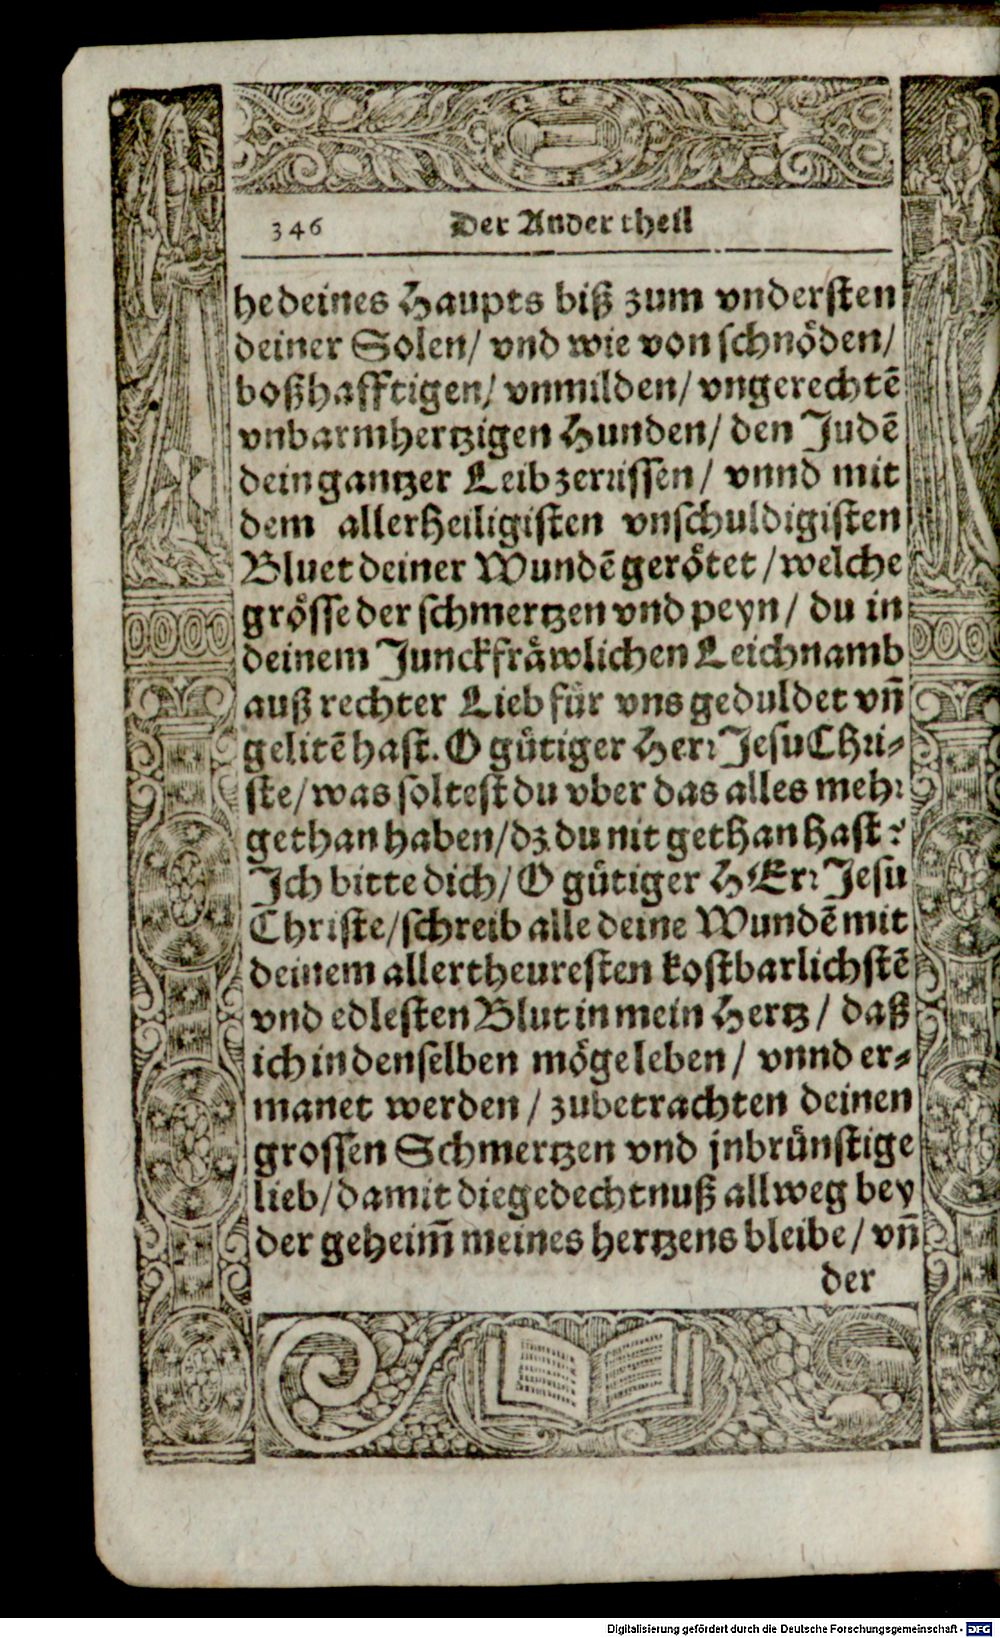 346 Der Ander theil
he deines Haupts biß zum vndersten
deiner Solen/ vnd wie von schnöden/
boßhafftigen/ vnmilden/ vngerechtē
vnbarmhertzigen Hunden/ den Judē
dein gantzer Leib zerrissen/ vnnd mit
dem allerheiligisten vnschuldigisten
Bluet deiner Wundē gerötet/welche
grösse der schmertzen vnd peyn/ du in
deinem Junckfräwlichen Leichnamb
auß rechter Lieb für vns geduldet vn̄
gelitē hast. O gütiger Herr Jesu Chri⸗
ste/was soltest du vber das alles mehr
gethan haben/dz du nit gethan hast?
Ich bitte dich/ O gütiger HErr Jesu
Christe/schreib alle deine Wundē mit
deinem allertheuresten kostbarlichstē
vnd edlesten Blut in mein Hertz/ daß
ich in denselben möge leben/ vnnd er⸗
manet werden/ zubetrachten deinen
grossen Schmertzen vnd jnbrünstige
lieb/damit die gedechtnuß allweg bey
der geheim̄ meines hertzens bleibe/ vn̄
der
Digitalisierung gefördert durch die Deutsche Forschungsgemeinschaft - DFG